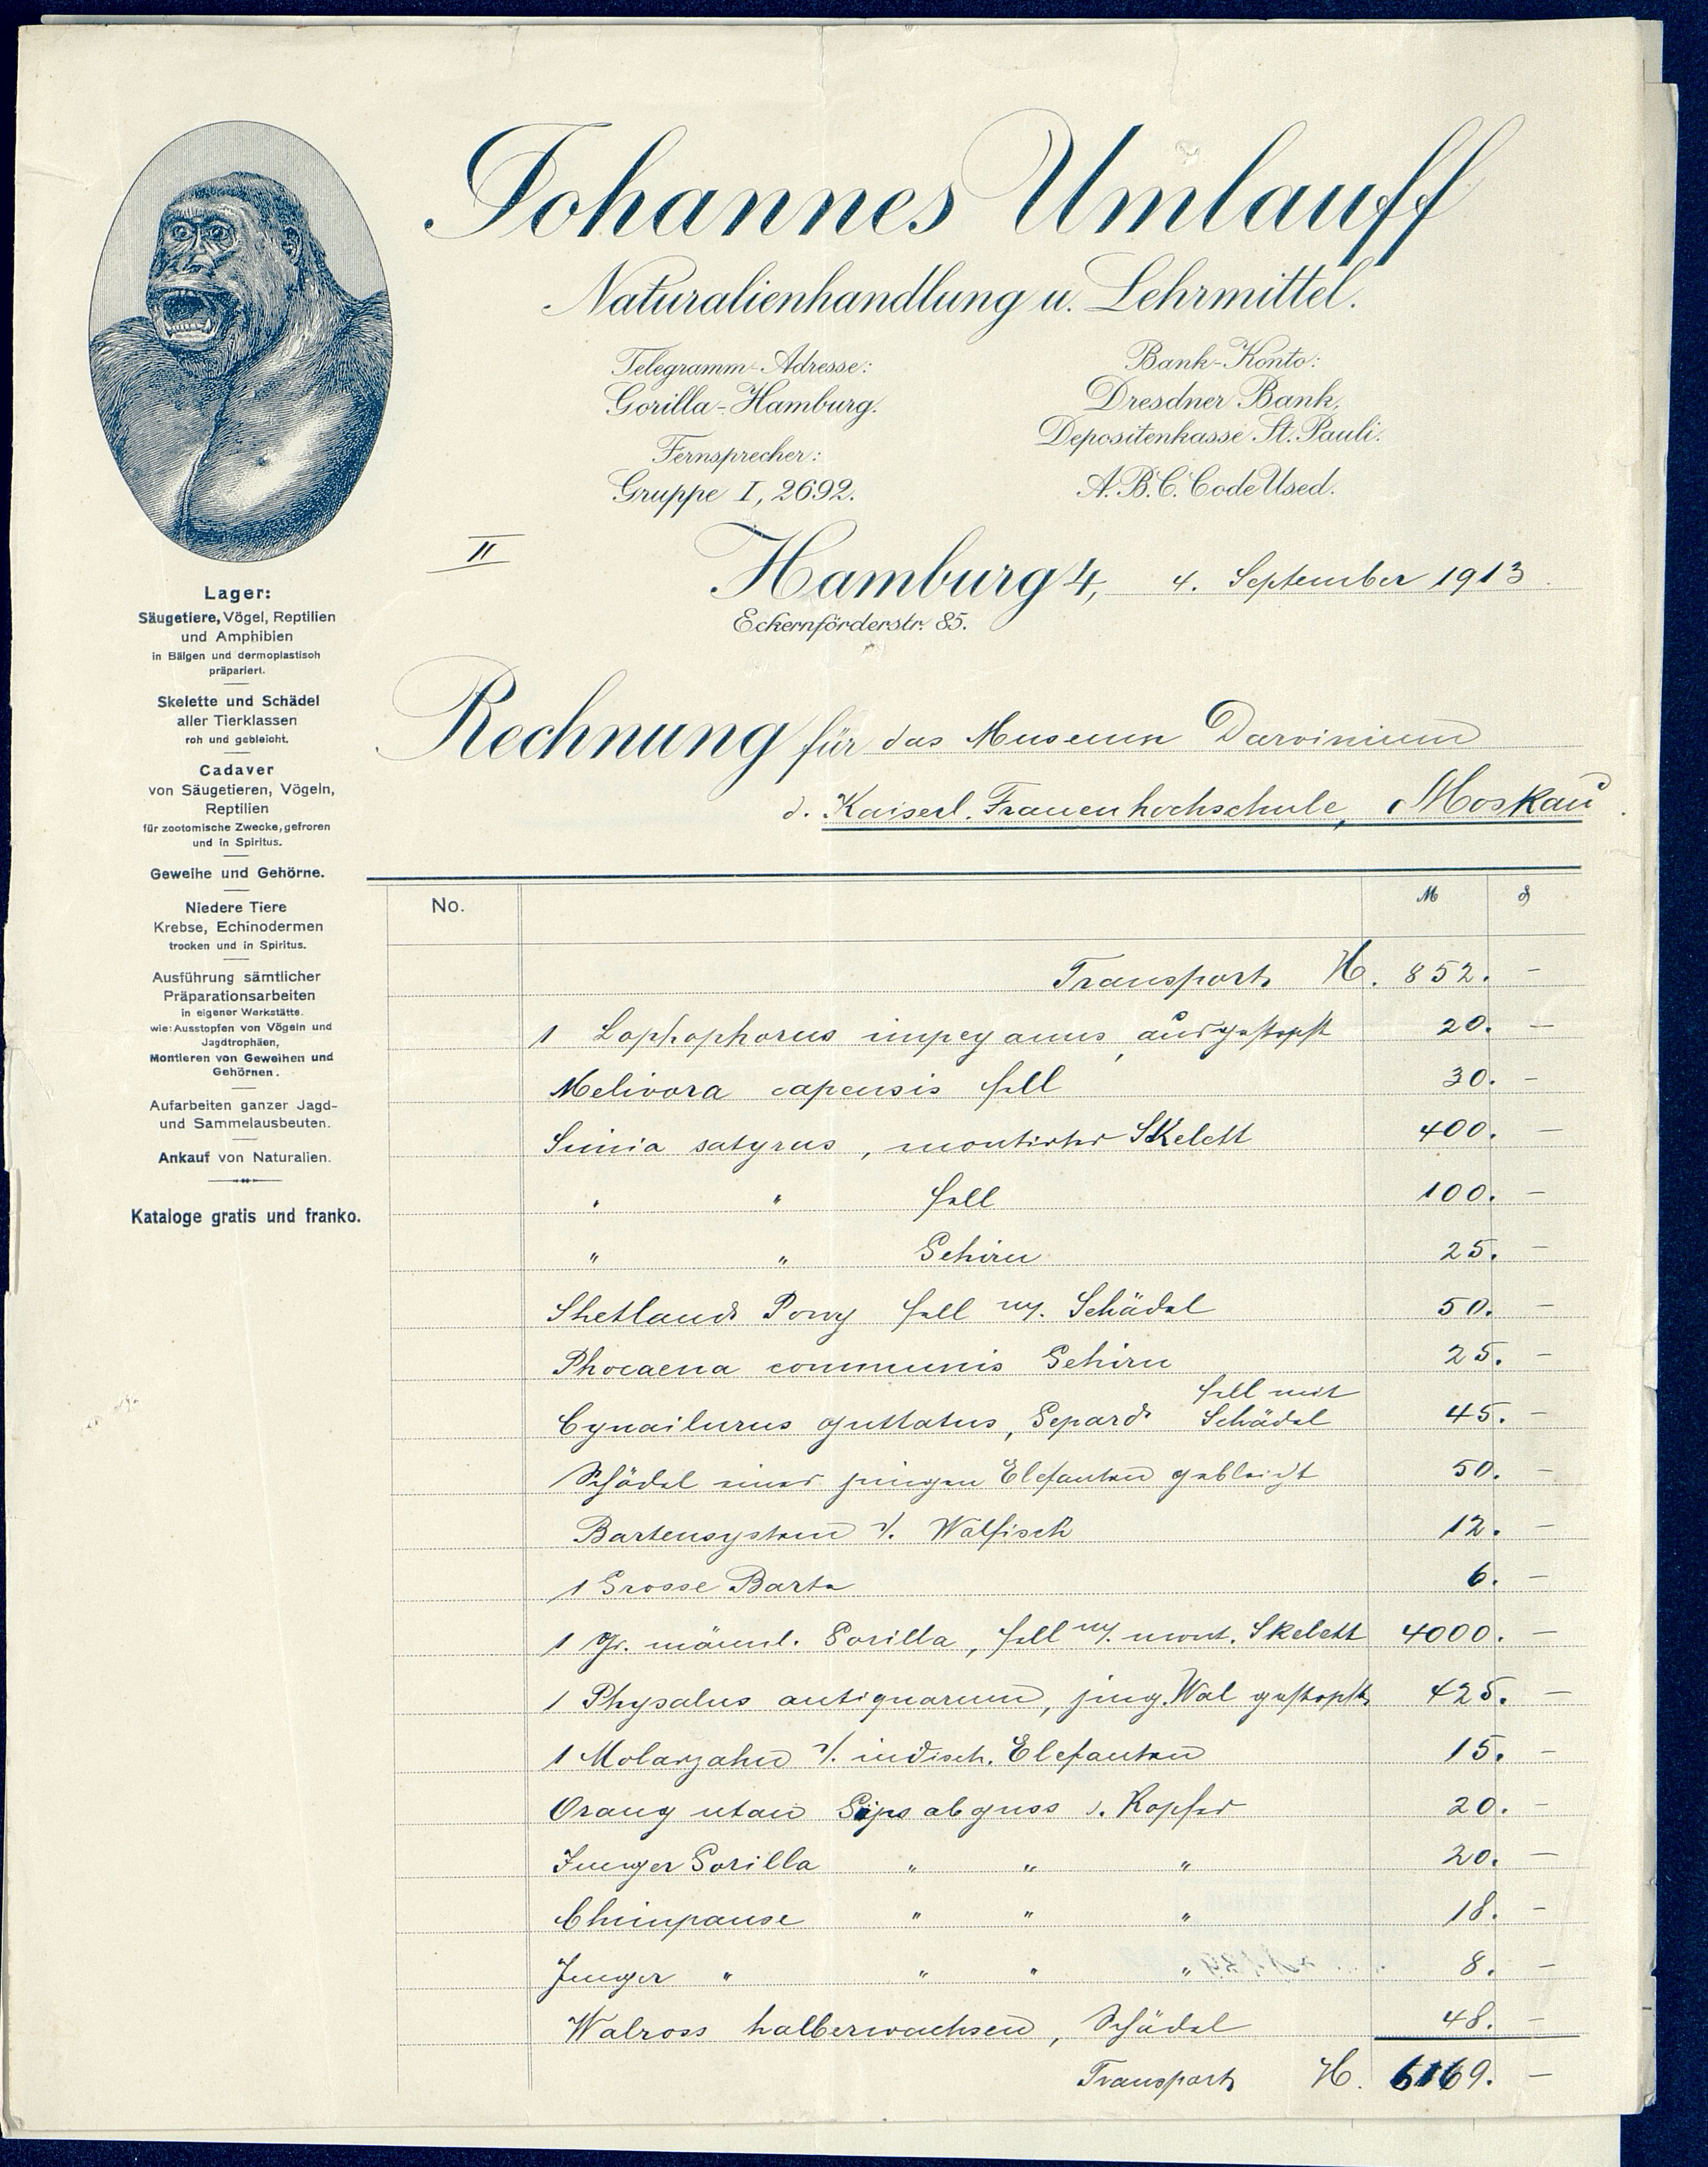 Johannes Umlauff
Naturalienhandlung u. Lehrmittel.
Telegramm-Adresse:
Gorilla-Hamburg.
Fernsprecher:
Gruppe I, 2692.
Bank-Konto:
Dresdner Bank,
Depositenkasse St. Pauli.
A.B.C. Code Used.
II
Hamburg 4, 4. September 1913.
Eckernförderstr. 85.
Lager:
Säugetiere, Vögel, Reptilien
und Amphibien
in Bälgen und dermoplastisch
präpariert.
Skelette und Schädel
aller Tierklassen
roh und gebleicht.
Cadaver
von Säugetieren, Vögeln,
Reptilien
für zootomische Zwecke, gefroren
und in Spiritus.
Geweihe und Gehörne.
Niedere Tiere
Krebse, Echinodermen
trocken und in Spiritus.
Ausführung sämtlicher
Präparationsarbeiten
in eigener Werkstätte.
wie: Ausstopfen von Vögeln und
Jagdtrophäen,
Montieren von Geweihen und
Gehörnen.
Aufarbeiten ganzer Jagd-
und Sammelausbeuten.
Ankauf von Naturalien.
Kataloge gratis und franko.
Rechnung für das Museum Darvinium
d. Kaiserl. Frauenhochschule, Moskau
No. M ₰
Transport M. 852. –
1 Lophophorus impeyanus, ausgestopft 20. –
Melivora capensis Fell 30. –
Simia satyrus, montirtes Skelett 400. –
" " Fell 100. –
" " Gehirn 25. –
Shetland Pony Fell m. Schädel 50. –
Phocaena communis Gehirn 25. –
Fell mit
Cynailurus guttatus, Gepard Schädel 45. –
Schädel eines jungen Elefanten gebleicht 50. –
Bartensystem v. Walfisch 12. –
1 Grosse Barte 6. –
1 gr. männl. Gorilla, Fell m. mont. Skelett 4000. –
1 Physalus antiquorum, jung. Wal gestopft 425. –
1 Molarzahn v. indisch. Elefanten 15. –
Orang utan Gips abguss d. Kopfes 20. –
Junger Gorilla " " " 20. –
Chimpanse " " " 18. –
Junger " " " " 8. –
Walross halberwachsen, Schädel 48. –
Transport M. 6169. –